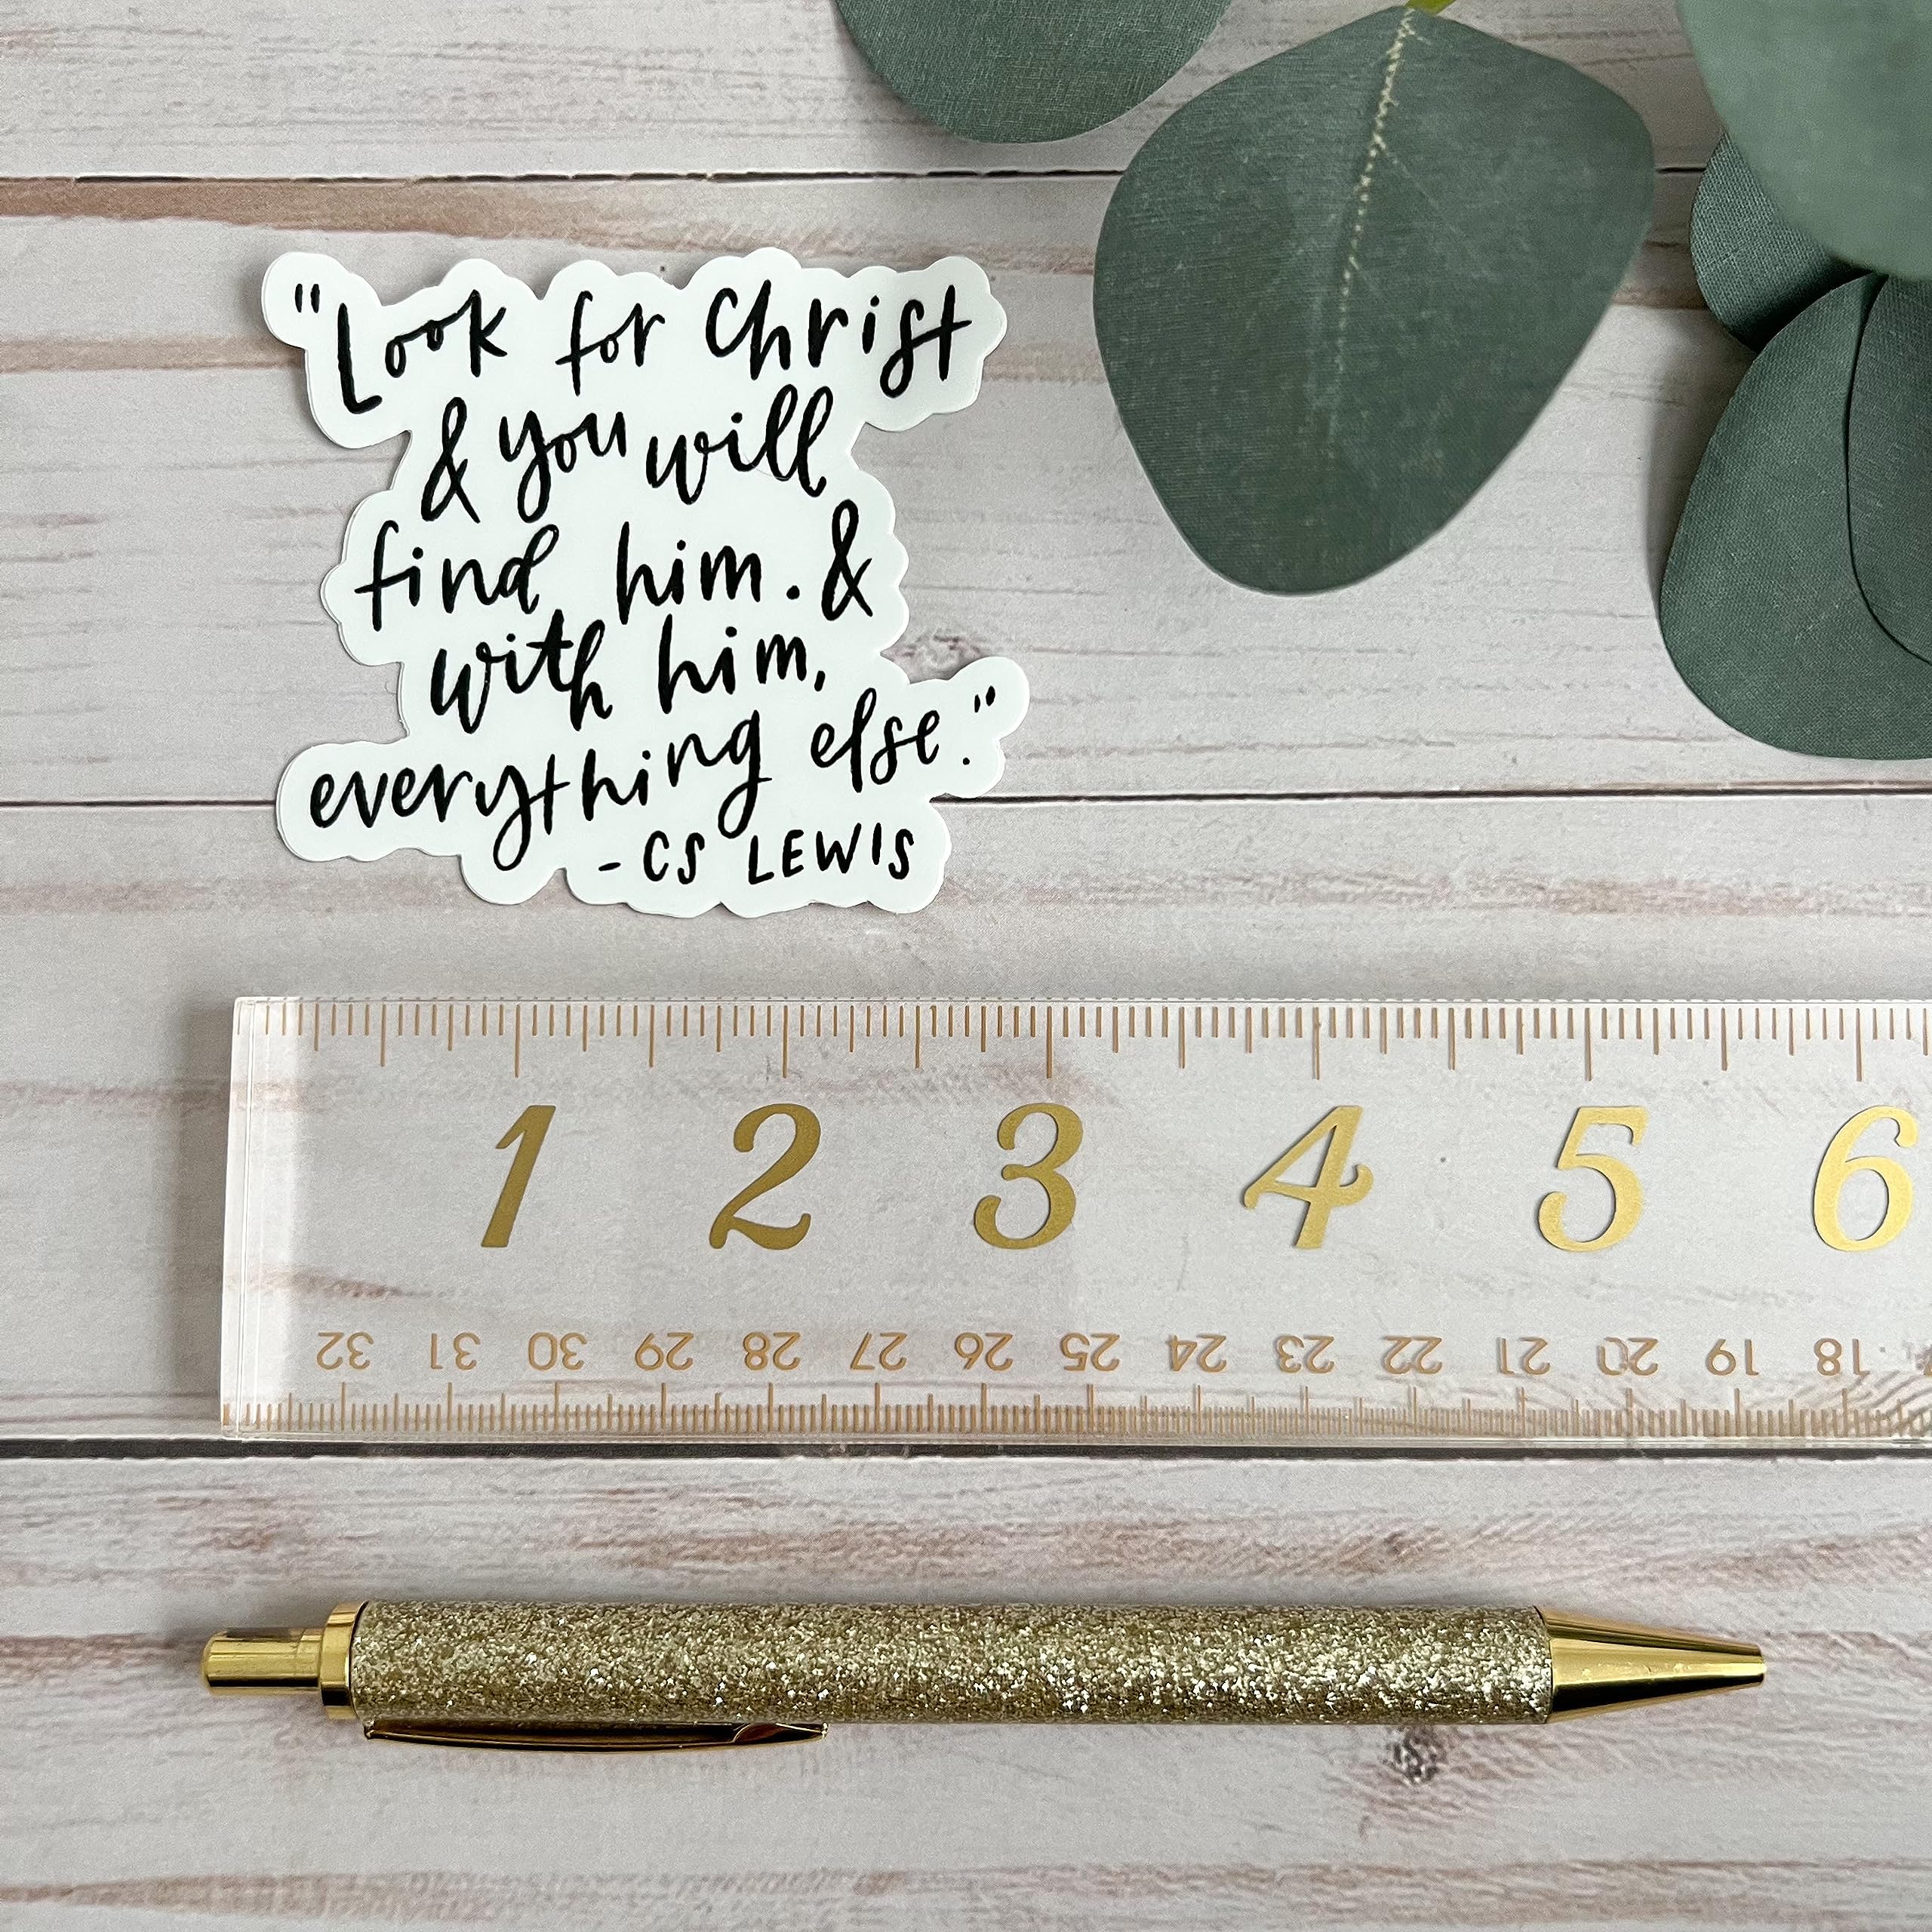 "Look for Christ
& you will
find him. &
with him,
everything else."
-CS LEWIS
1 2 3 4 5 6
32 31 30 29 28 27 26 25 24 23 22 21 20 19 18